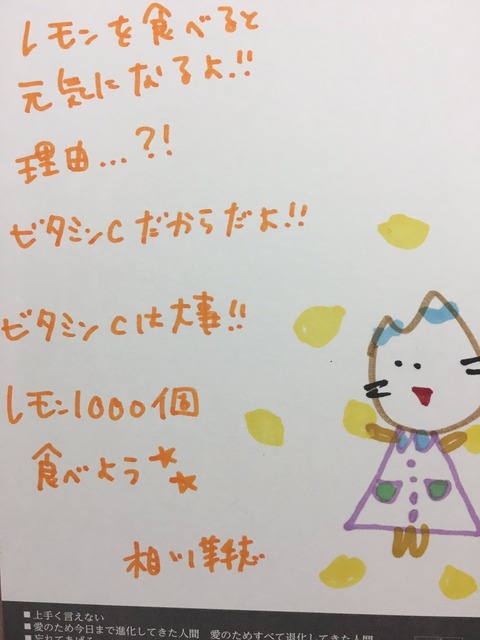 レモンを食べると
元気になるよ!!
理由...?!
ビタミンCだからだよ!!
ビタミンCは大事!!
レモン1000個
食べよう☆☆
相川
■上手く言えない
■愛のため今日まで進化してきた人間　愛のためすべて退化してきた人間
■忘れてあげる